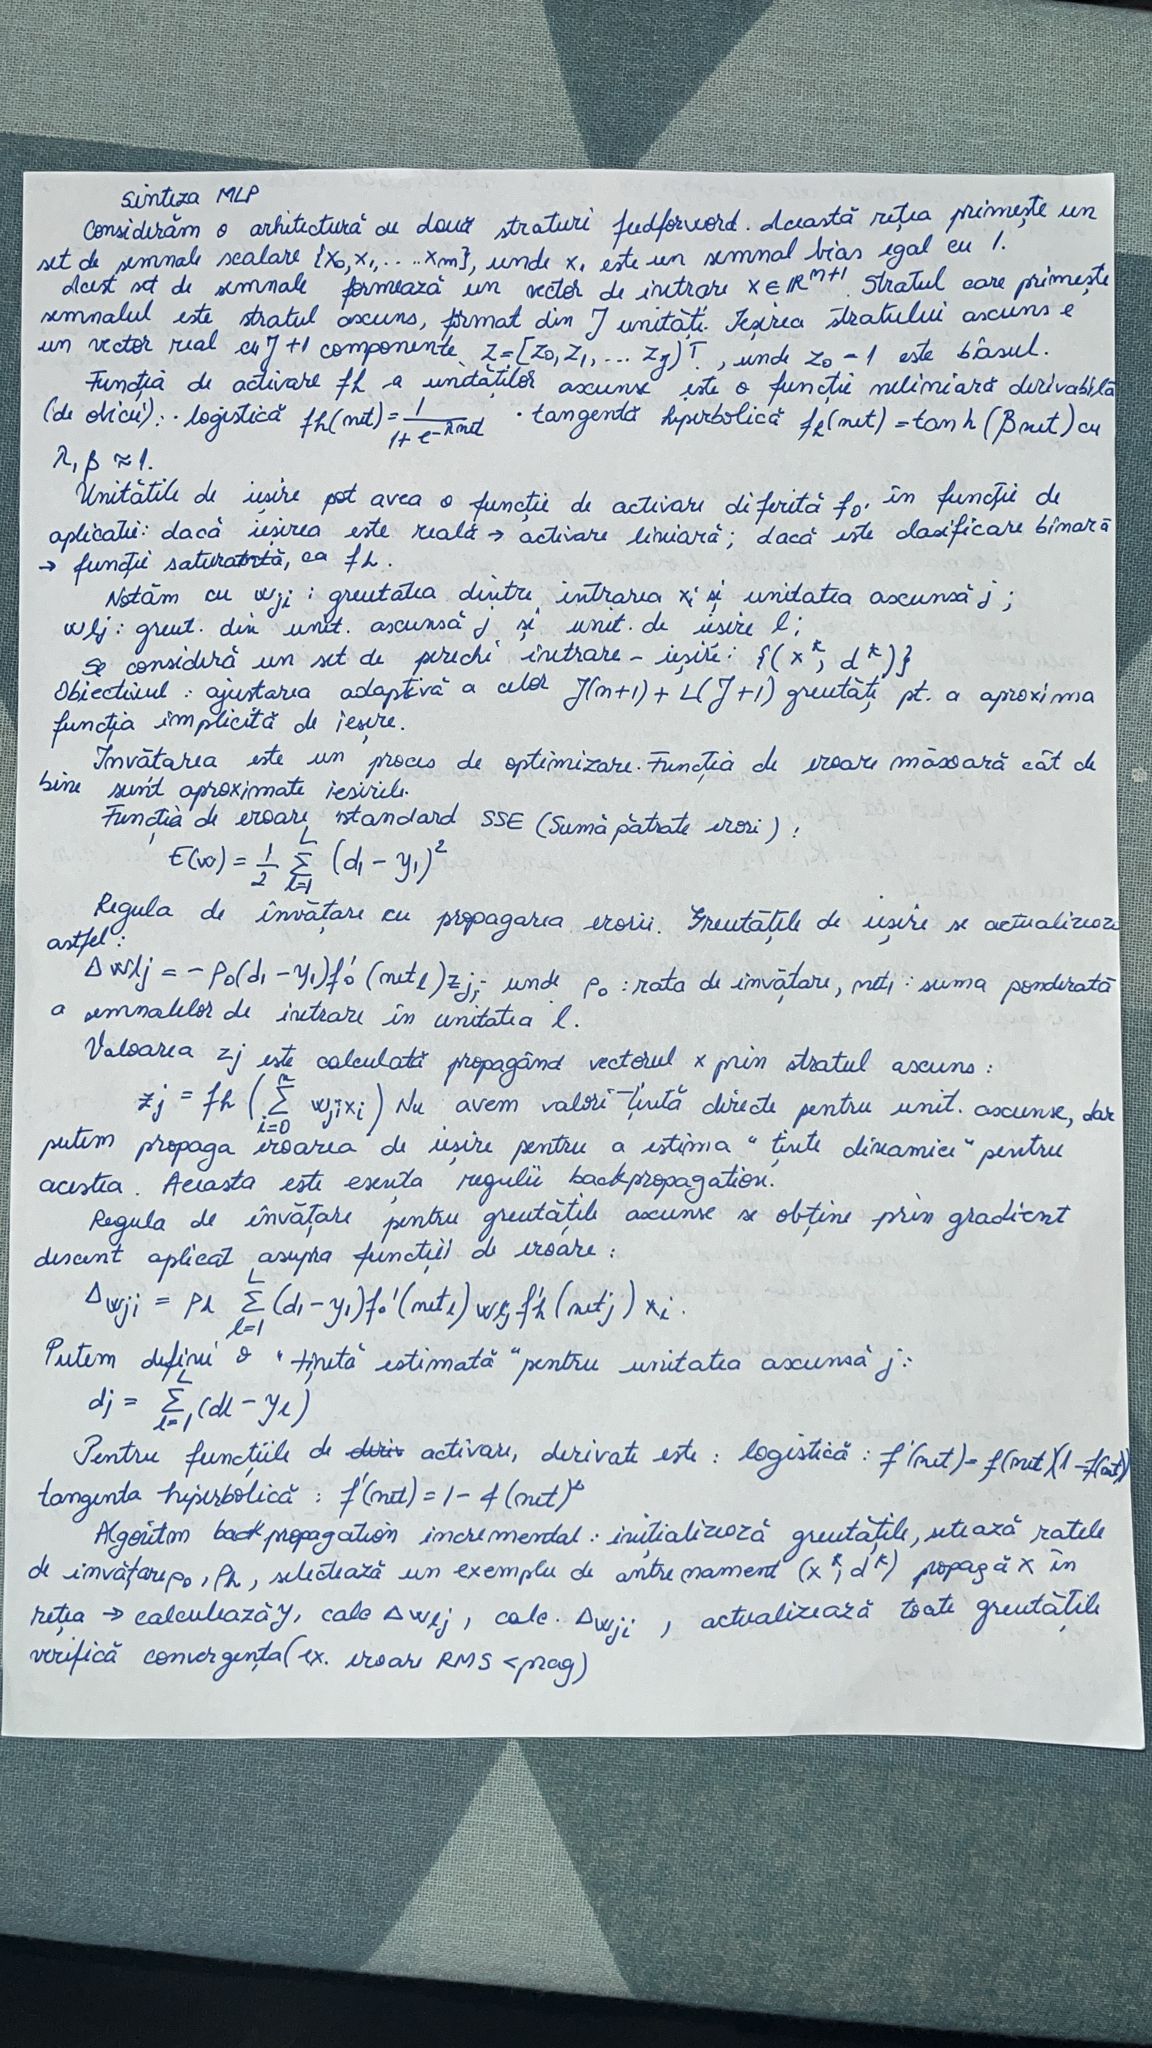 Sinteza MLP
Considerăm o arhitectură cu două straturi feedforword. Această rețea primește un
set de semnale scalare {x₀, x₁, ..... xₘ}, unde x₁ este un semnal bias egal cu 1.
Acest set de semnale formează un vector de intrare x ∈ ℝⁿ⁺¹. Stratul care primește
semnalul este stratul ascuns, format din J unități. Ieșirea stratului ascuns e
un vector real cu J+1 componente z = [z₀, z₁, ... zJ)ᵀ, unde z₀ = 1 este biasul.
Funcția de activare fh a unităților ascunse este o funcție neliniară derivabilă
(de obicei): · logistică fh(net) = 1/(1 + e^-λnet) · tangentă hiperbolică fh(net) = tanh(βnet) cu
λ, β ≈ 1.
Unitățile de ieșire pot avea o funcție de activare diferită f₀, în funcție de
aplicație: dacă ieșirea este reală → activare liniară; dacă este clasificare binară
→ funcții saturată, ca fh.
Notăm cu wji : greutatea dintre intrarea xi și unitatea ascunsă j;
wlj : greut. din unit. ascunsă j și unit. de ieșire l;
Se consideră un set de perechi intrare - ieșire: {(xᵏ, dᵏ)}
Obiectivul : ajustarea adaptivă a celor J(n+1) + L(J+1) greutăți pt. a aproxima
funcția implicită de ieșire.
Învățarea este un proces de optimizare. Funcția de eroare măsoară cât de
bine sunt aproximate ieșirile.
Funcția de eroare standard SSE (Sumă pătrate erori) :
E(w) = 1/2 Σ_{l=1}^{L} (d₁ - y₁)²
Regula de învățare cu propagarea erorii. Greutățile de ieșire se actualizează
astfel :
Δwlj = -ρ₀(d₁ - y₁)f₀'(netₗ)zj; unde ρ₀ : rata de învățare, net₁ : suma ponderată
a semnalelor de intrare în unitatea l.
Valoarea zj este calculată propagând vectorul x prin stratul ascuns :
zj = fh(Σ_{i=0}^{n} wjixi) Nu avem valori-țintă directe pentru unit. ascunse, dar
putem propaga eroarea de ieșire pentru a estima "ținte dinamice" pentru
acestea. Aceasta este esența regulii backpropagation.
Regula de învățare pentru greutățile ascunse se obține prin gradient
descent aplicat asupra funcției de eroare :
Δwji = ρh Σ_{l=1}^{L} (d₁ - y₁)f₀'(netₗ) wlj f'h(netj) xi.
Putem defini o "țintă estimată" pentru unitatea ascunsă j :
dj = Σ_{l=1}^{L} (dl - yl)
Pentru funcțiile de deriv activare, derivate este : logistică : f'(net) = f(net)(1 - f(net))
tangenta hiperbolică : f'(net) = 1 - f(net)²
Algoritm backpropagation incremental : inițializează greutățile, setează ratele
de învățare ρ₀, ρh, selectează un exemplu de antrenament (xᵏ, dᵏ) propagă x în
rețea → calculează y, calc Δwlj, calc. Δwji, actualizează toate greutățile
verifică convergența (ex. eroare RMS < prag)